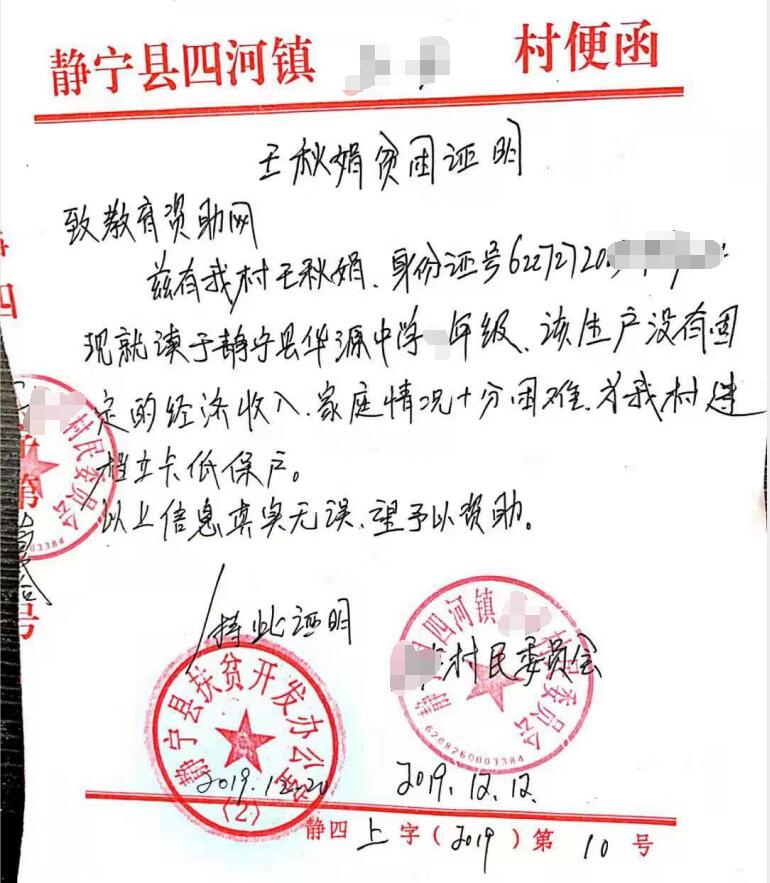 静宁县四河镇 村便函
王秋娟贫困证明
致教育资助网
兹有我村王秋娟、身份证号62272720
现就读于静宁县华源中学 年级、该生户没有固
定的经济收入、家庭情况十分困难、为我村建
档立卡低保户。
以上信息真实无误、望予以资助。
特此证明
村民委员会
静宁县四河镇 村民委员会
6208260003384
静宁县扶贫开发办公室
(2)
2019.12.20
2019.12.12.
静四上字(2019)第10号
村民委员会
03384
四
字第
号